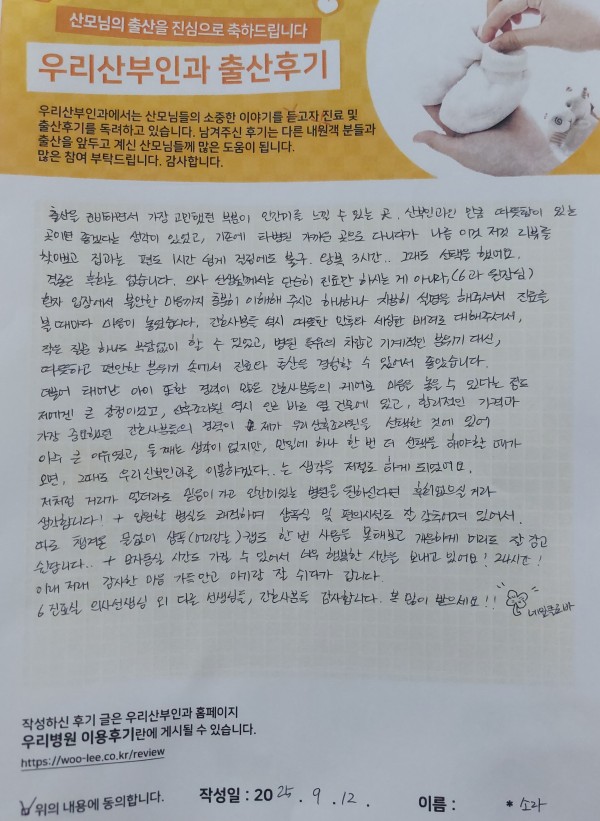 산모님의 출산을 진심으로 축하드립니다
우리산부인과 출산후기
우리산부인과에서는 산모님들의 소중한 이야기를 듣고자 진료 및
출산후기를 독려하고 있습니다. 남겨주신 후기는 다른 내원객 분들과
출산을 앞두고 계신 산모님들께 많은 도움이 됩니다.
많은 참여 부탁드립니다. 감사합니다.
출산을 준비하면서 가장 고민했던 부분이 인간미를 느낄 수 있는 곳. 산부인과인 만큼 따뜻함이 있는
곳이면 좋겠다는 생각이 있었고, 기존에 타병원 가까운 곳으로 다니다가 나름 이것 저것 리뷰를
찾아보고 집과는 편도 1시간 넘게 걸림에도 불구. 왕복 3시간.. 그래도 선택을 했어요.
결론은 후회는 없습니다. 의사 선생님께서는 단순히 진료만 하시는 게 아니라, (6과 원장님)
환자 입장에서 불안한 마음까지 충분히 이해해 주시고 하나하나 차분히 설명을 해주셔서 진료를
볼 때마다 마음이 놓였습니다. 간호사분들 역시 따뜻한 말투와 세심한 배려로 대해주셔서,
작은 질문 하나도 부담없이 할 수 있었고, 병원 특유의 차갑고 기계적인 분위기 대신,
따뜻하고 편안한 분위기 속에서 진료와 출산을 경험할 수 있어서 좋았습니다.
더불어 태어난 아이 또한 경력이 많은 간호사분들의 케어로 마음을 놓을 수 있다는 점도
저에겐 큰 장점이었고, 산후조리원 역시 인근 바로 옆 건물에 있고, 합리적인 가격과
가장 중요했던 간호사분들의 경력이 제가 우리산후조리원을 선택한 것에 있어
아주 큰 이유였고, 둘째는 생각이 없지만, 만일에 하나 한 번 더 선택을 해야할 때가
오면, 그때도 우리산부인과를 이용하겠다.. 는 생각을 저절로 하게 되었어요.
저처럼 거리가 멀더라도 믿음이 가고 인간미있는 병원을 원하신다면 후회없으실 거라
생각합니다! + 입원한 병실도 쾌적하며 샴푸실 및 편의시설도 잘 갖추어져 있어서.
따로 챙겨온 물없이 샴푸 (머리감는) 캡도 한 번 사용을 못해보고 개운하게 머리도 잘 감고
쉰답니다.. + 모자동실 시간도 가질 수 있어서 너무 행복한 시간을 보내고 있어요! 24시간!
이래 저래 감사한 마음 가득안고 아기랑 잘 쉬다가 갑니다.
6진료실 의사선생님 외 다른 선생님들, 간호사분들 감사합니다. 복 많이 받으세요!!
네잎클로바
작성하신 후기 글은 우리산부인과 홈페이지
우리병원 이용후기란에 게시될 수 있습니다.
https://woo-lee.co.kr/review
위의 내용에 동의합니다. 작성일 : 2025. 9. 12. 이름 : *소라